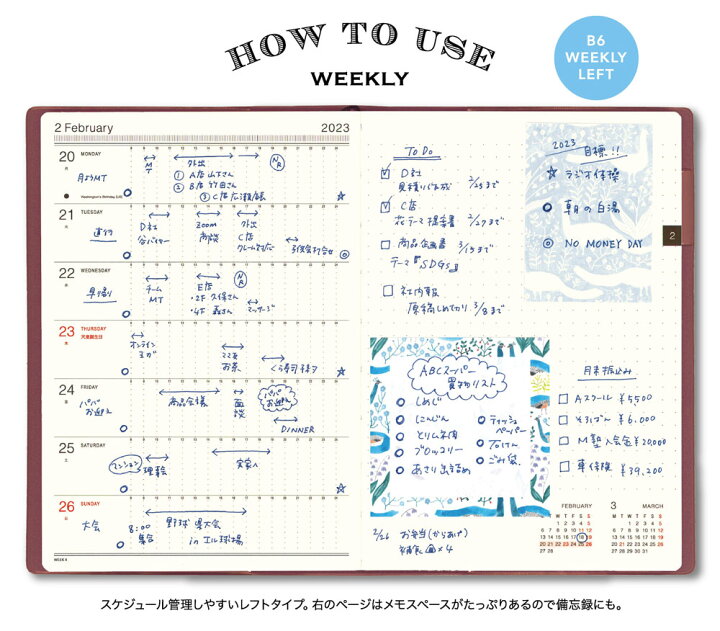 HOW TO USE
WEEKLY
B6
WEEKLY
LEFT
2 February
2023
20 MONDAY
月
月よりMT
Washington's Birthday (US)
MT
外出
① A店 山下さん
② B店 竹田さん
③ C店 広瀬店長
NR
21 TUESDAY
火
直行
D社
Zoom
商談
外出
C店
22 WEDNESDAY
水
早帰り
チーム
MT
E店
・2F 久保さん
・4F 森さん
マッサージ
NR
23 THURSDAY
木
天皇誕生日
オンライン
ヨガ
ママ友
お茶
くら寿司 待つ
24 FRIDAY
金
パパ
お迎え
商品会議
面談
パパ
お迎え
DINNER
25 SATURDAY
土
マンション
理事会
実家へ
26 SUNDAY
日
大会
8:00
集合
野球 県大会
in エル球場
WEEK 8
To Do
D社
見積り作成 2/25まで
C店
花テーマ提案書 2/27まで
商品企画書 3/15まで
テーマ『SDGs』
社内報
原稿しめ切り 3/8まで
2023
目標!!
ラジオ体操
朝の白湯
NO MONEY DAY
2
ABCスーパー
買物リスト
しめじ
にんじん
とりムネ肉
ブロッコリー
あさり缶詰め
ティッシュ
ペーパー
石けん
ごみ袋
月末振込み
Aスクール ¥5,500
そろばん ¥6,000
M塾入会金 ¥20,000
車保険 ¥39,200
2/26 お弁当(からあげ)
補食 ×4
FEBRUARY
M T W T F S S
1 2 3 4 5
6 7 8 9 10 11 12
13 14 15 16 17 18 19
20 21 22 23 24 25 26
27 28
3 MARCH
M T W T F S S
1 2 3 4 5
6 7 8 9 10 11 12
13 14 15 16 17 18 19
20 21 22 23 24 25 26
27 28 29 30 31
スケジュール管理しやすいレフトタイプ。右のページはメモスペースがたっぷりあるので備忘録にも。